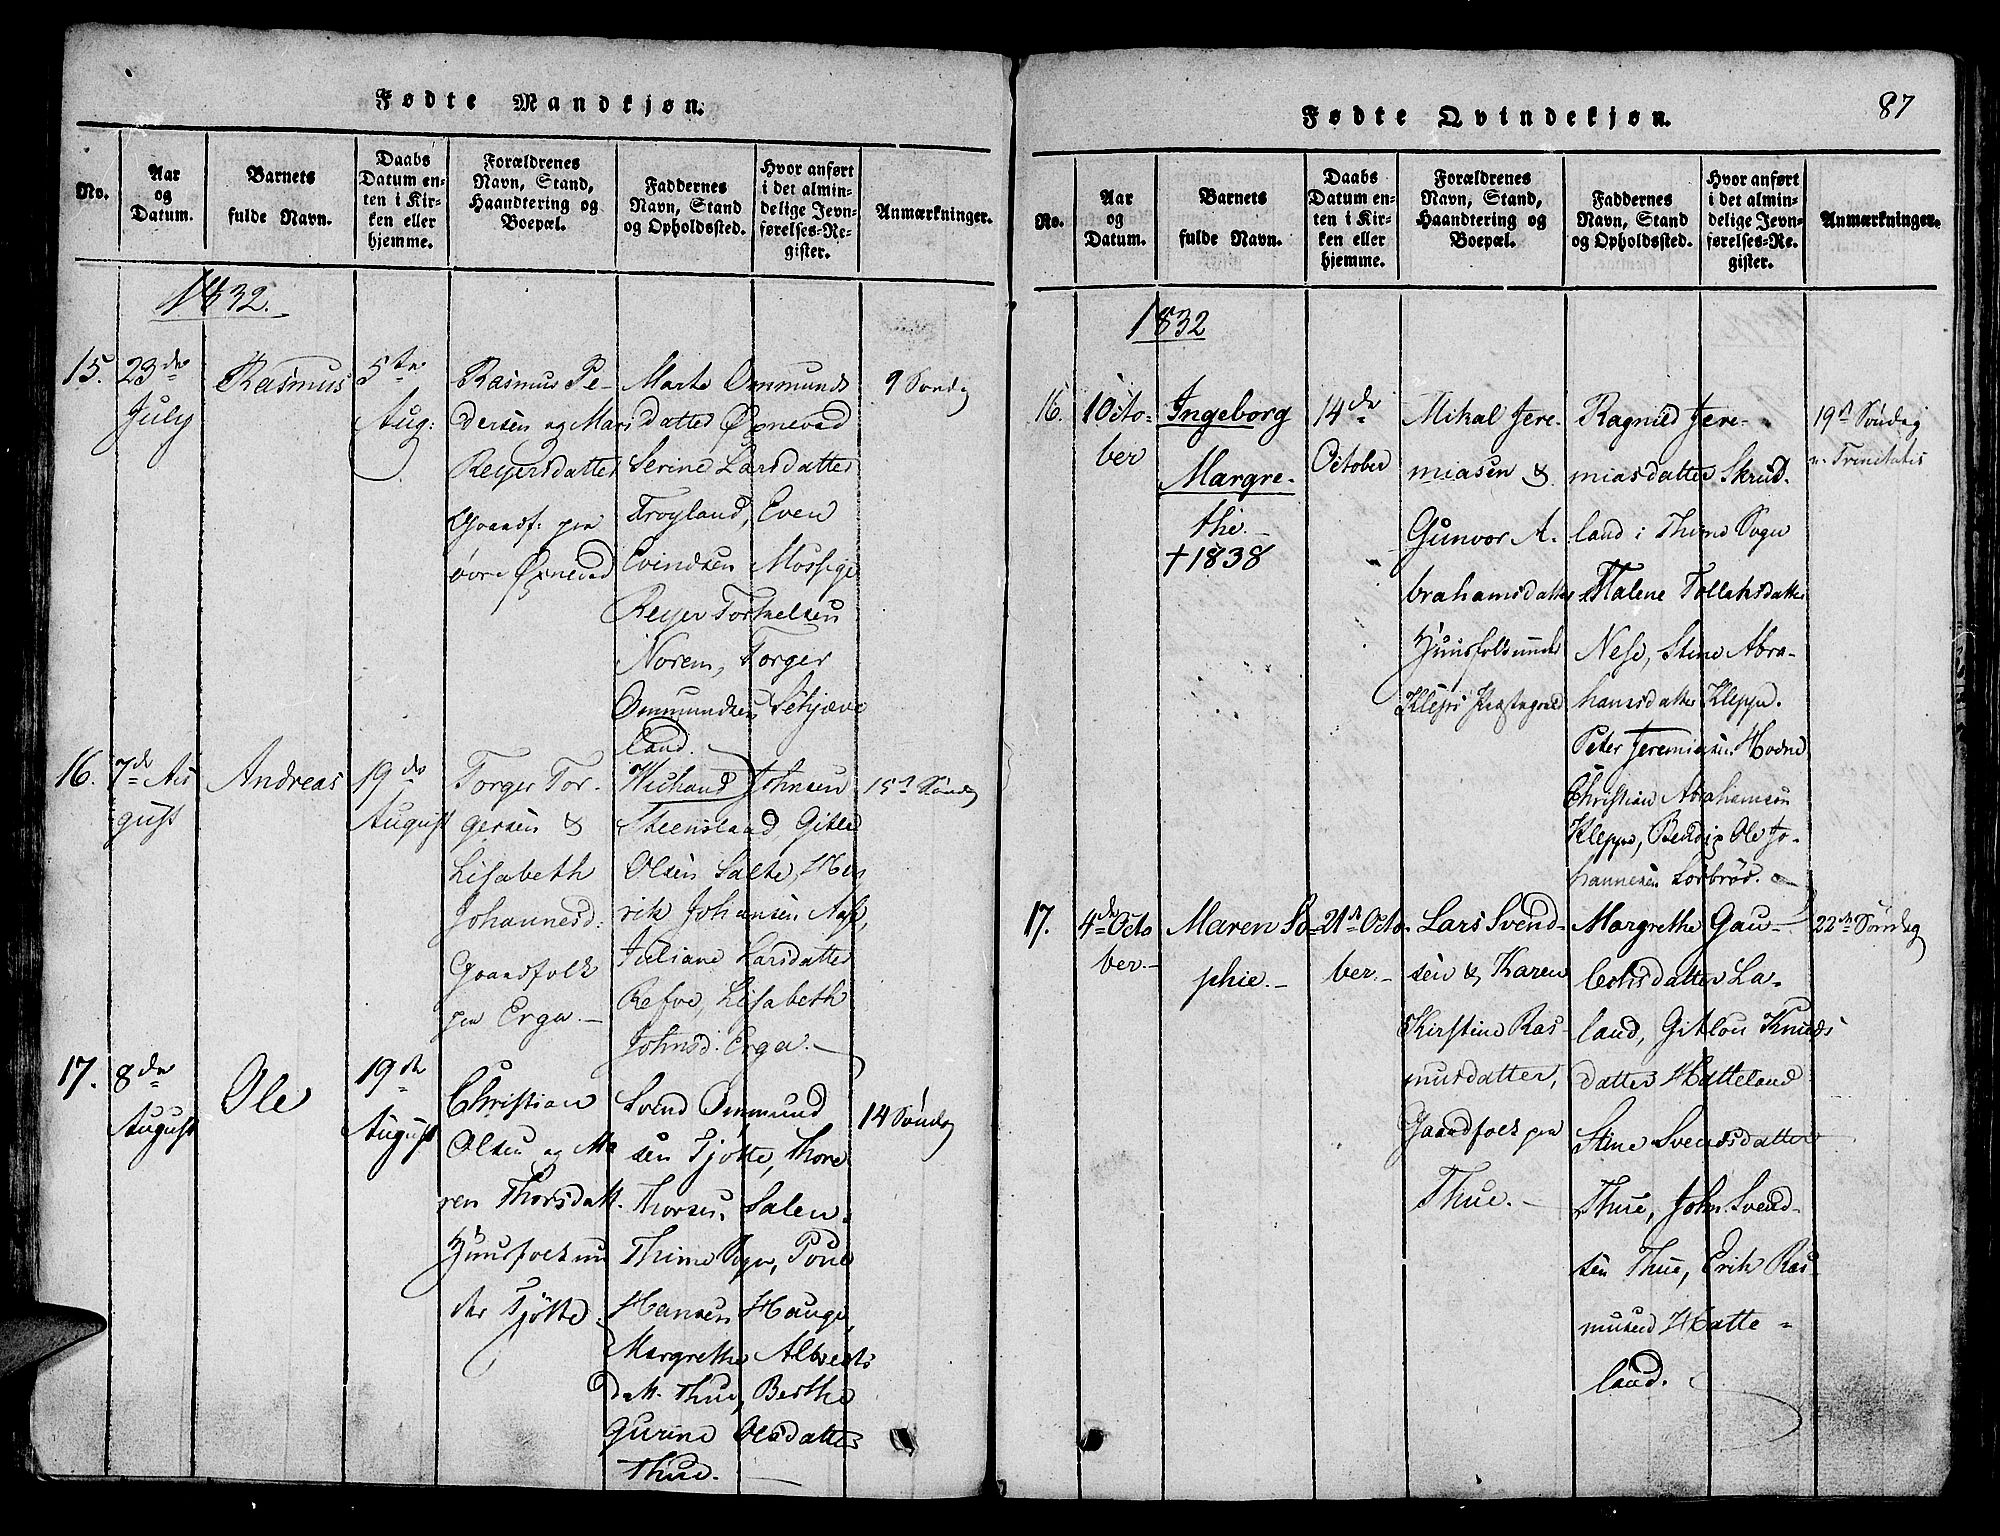 Fødte Mandkjøn.
No.
Aar
og
Datum.
Barnets
fulde Navn.
Daabs
Datum en-
ten i Kir-
ken eller
hjemme.
Forældrenes
Navn, Stand,
Haandtering og
Boepæl.
Faddernes
Navn, Stand
og Opholdssted.
Hvor anført
i det almin-
delige Jevn-
førelses-Re-
gister.
Anmærkninger.
1832.
15.
23de
July
Rasmus
5te
Aug:
Rasmus Pe-
dersen og Mari
Reyersdatter
Gaardf. paa
øvre Øxnevad
Marte Ommunds
datter Øxnevad
Serine Larsdatter
Frøyland, Even
Evindsen Mossige
Reyer Torkelsen
Norem, Torger
Ommundsen Schjæve
land.
9 Søndag
16.
7de Au
gust
Andreas
19de
August
Torger Tor-
gersen &
Lisabeth
Johannesd:
Gaardfolk
paa Erga.-
Wichand Johnsen
Steensland, Gitle
Olsen Salte, Hen
rik Johansen Aase,
Juliane Larsdatter
Refve, Lisabeth
Johnsd: Erga.-
Søndag
17.
8de
August
Ole
19de
August
Christian
Olsen og Ma
ren Thorsdatt.
Huusfolk un
der Tjøtte.
Svend Ommund
sen Tjøtte, Thore
Thorsen Salen
Thime Sogn, Poul
Hansen Hauge,
Margrethe Alberts
datt. Thue, Berthe
Gurine Olsdatter
Thue.
14 Søndag
Fødte Qvindekjøn.
87
No.
Aar
og
Datum.
Barnets
fulde Navn.
Daabs
Datum en-
ten i Kir-
ken eller
hjemme.
Forældrenes
Navn, Stand,
Haandtering og
Boepæl.
Faddernes
Navn, Stand
og Opholdssted.
Hvor anført
i det almin-
delige Jevn-
førelses-Re-
gister.
Anmærkninger.
1832
16.
1 Octo-
ber
Ingeborg
Margre-
the.-
+1838
14de
October
Mikal Jere-
miasen &
Gunvor A-
brahamsdatter
Huusfolk under
Klepps Præstegaard
Ragnild Jere-
miasdatter Skrud-
land i Thime Sogn
Malene Tollaksdatter
Nese, Stine Abra-
hamsdatter Kleppe.
Peter Jeremiasen Hodne
Christian Abrahamsen
Kleppe, Bendix Ole Jo-
hannesen Sørbrød.-
19de Søndag
Trinitatis
17.
4de Octo
ber.-
Maren So-
phie.-
21de Octo-
ber.-
Lars Svend-
sen & Karen
Kirstine Ras-
musdatter,
Gaardfolk paa
Thue.-
Margrethe Gau-
lechsdatter La-
land, Gitlou Knuds
datter Hatteland
Stine Svendsdatter
Thue, John Svend-
sen Thue, Erik Ras-
musen Hatte-
land.
22de Søndag